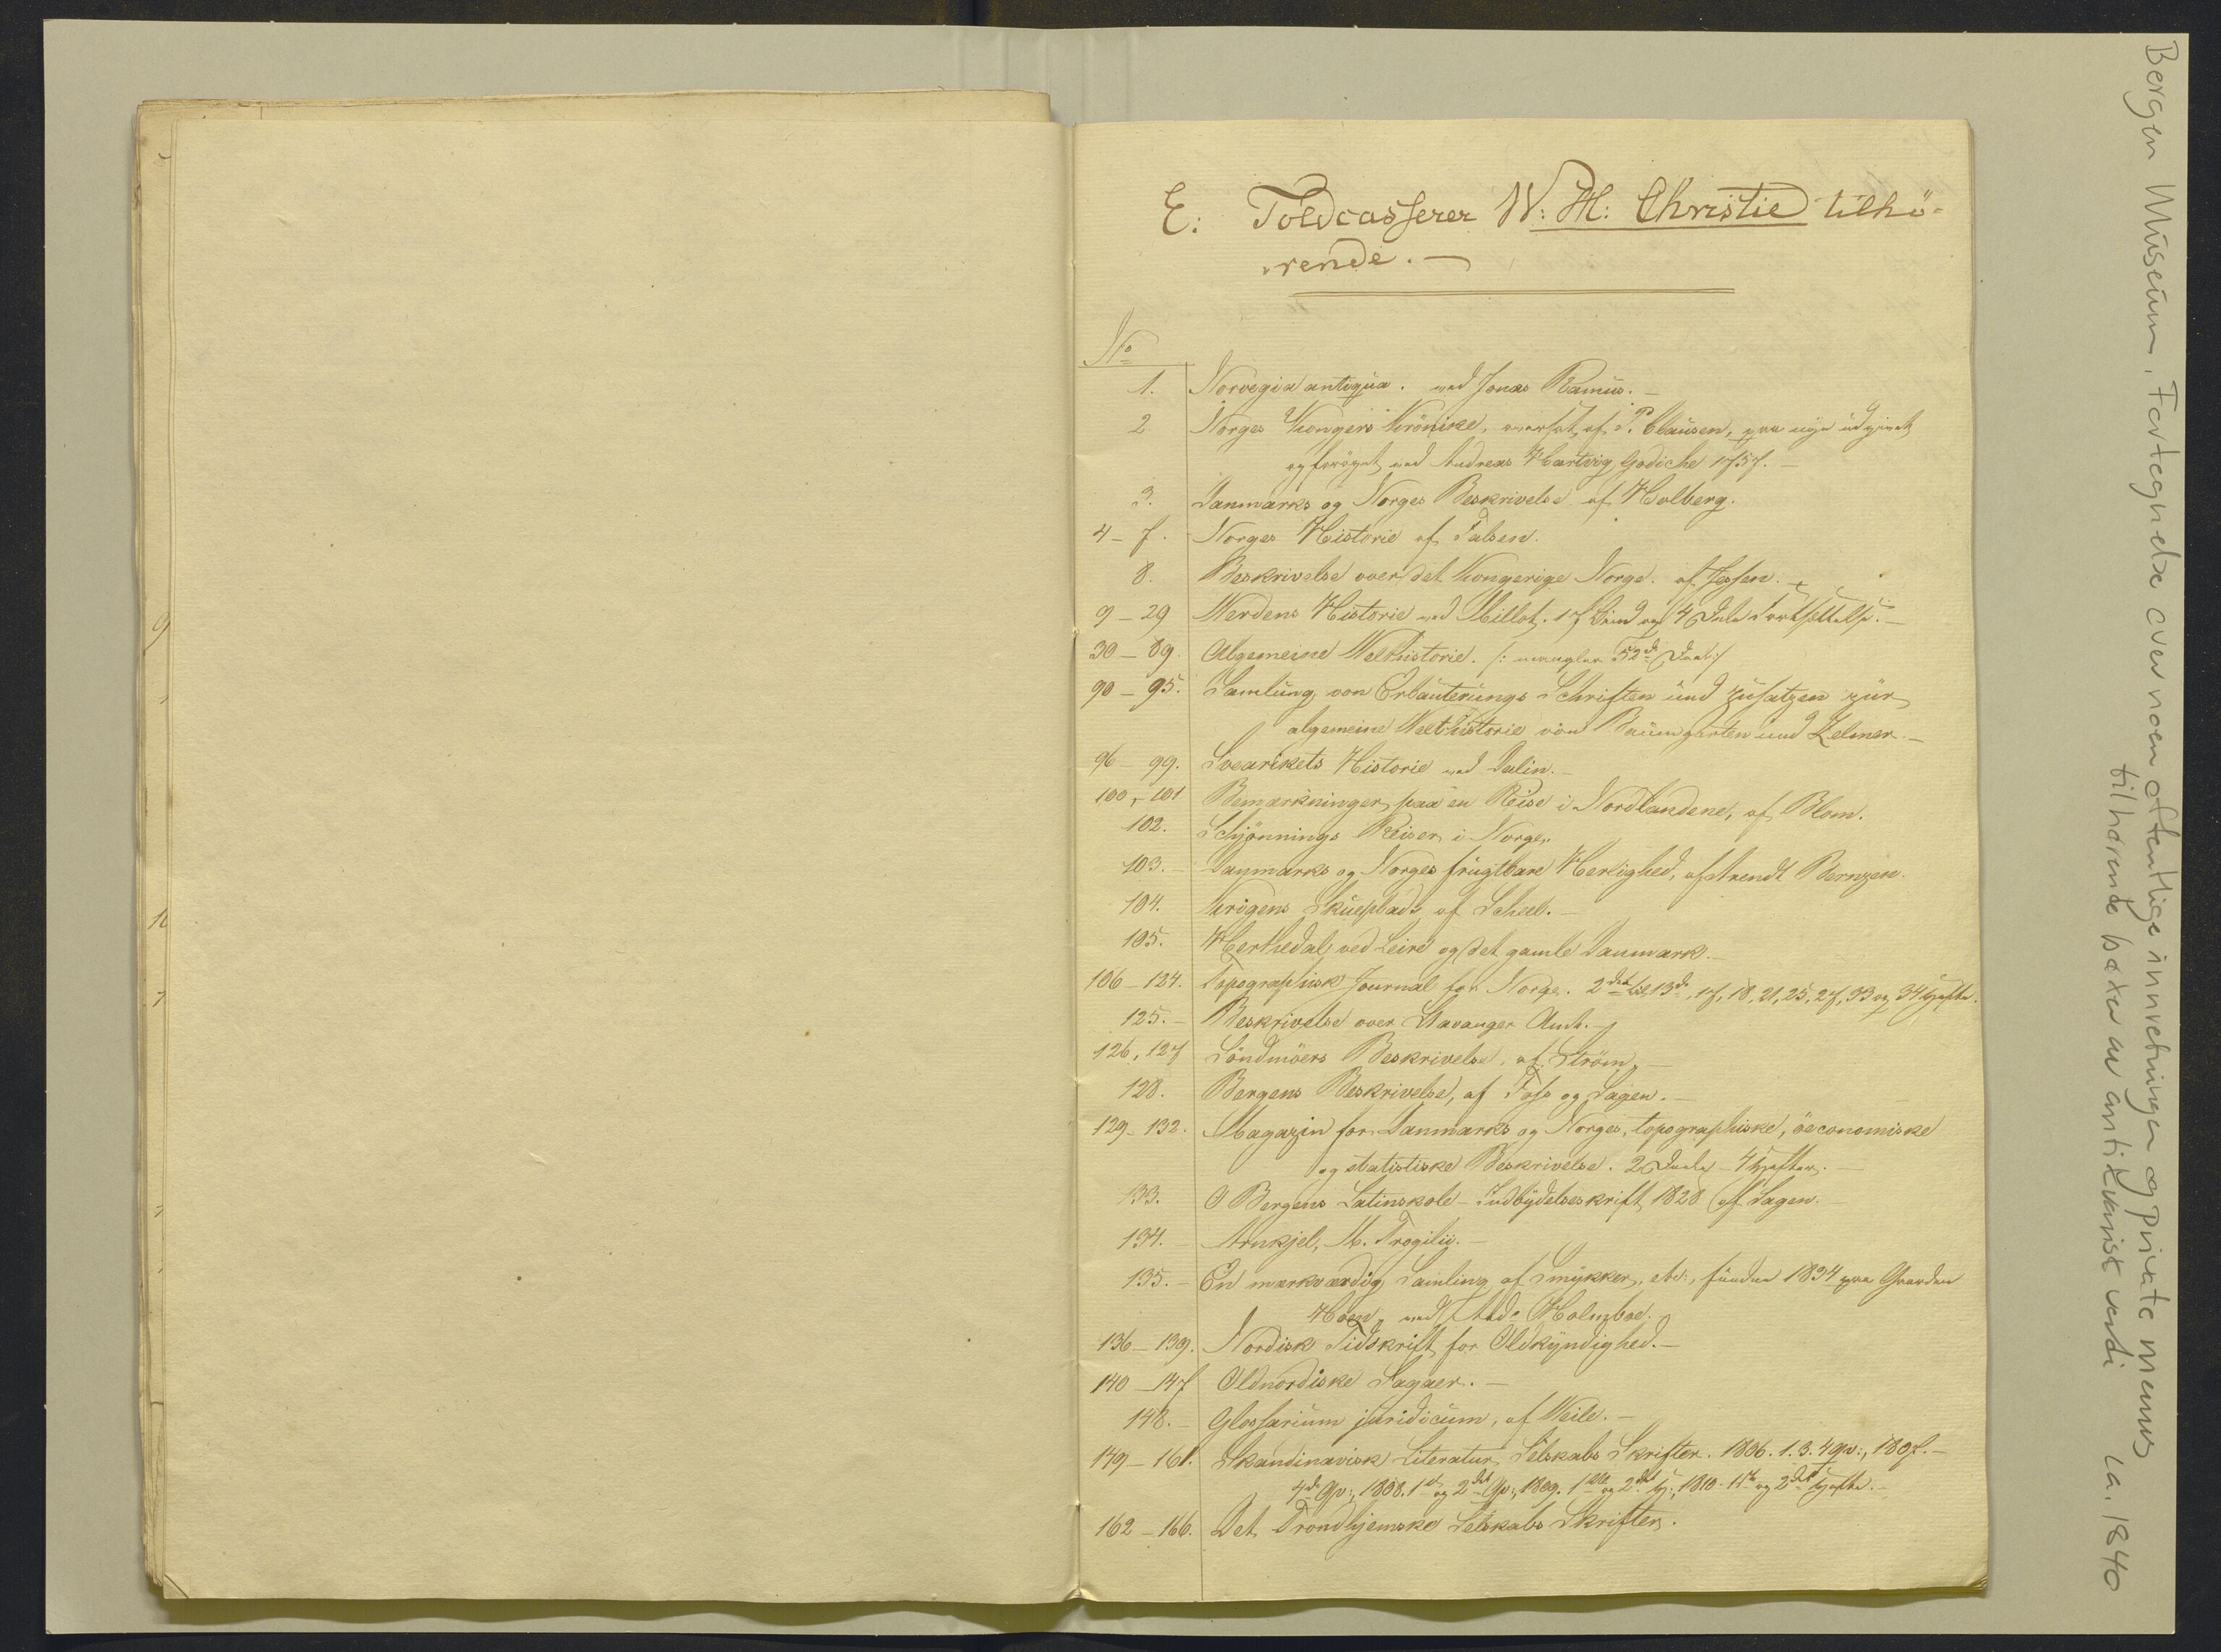 E: Toldcasserer W: M: Christie tilhö-
rende. —
No
1. Norvegia antiqua. ved Jonas Ramus. —
2 Norges Kongers Krönike, oversat af P. Clausen, paa nye udgivet
og forøget ved Andreas Hartvig Godiche 1757. —
3. Danmarks og Norges Beskrivelse af Holberg.
4 – 7. Norges Historie af Falsen.
8. Beskrivelse over det Kongerige Norge. af Jessen. —
9 – 29 Verdens Historie ved Millot. 17 Bind og 4 Dele Fortsættelse. —
30 – 89. Algemeine Welthistorie. /: mangler 52de Deel :/
90 – 95. Samlung von Erlauterungs Schriften und Zusatzen zur
algemeine Welthistorie von Baumgarten und Zelmer. —
96 – 99. Svearikets Historie ved Dalin. —
100, – 101 Bemærkninger paa en Reise i Nordlandene, af Blom.
102. Schjönnings Reiser i Norge.
103. – Danmarks og Norges frugtbare Herlighed, af Arendt Bernzen.
104. Krigens Skueplads, af Scheel. —
105. Herthedal ved Leire og det gamle Danmark. —
106 – 124. Topographisk Journal for Norge. 2det til 13de, 17, 18, 21, 25, 27, 33 og 34 Hefte.
125. – Beskrivelse over Stavanger Amt. —
126, 127 Söndmöers Beskrivelse, af Ström. —
128. Bergens Beskrivelse, af Foss og Sagen. —
129 – 132. Magazin for Danmarks og Norges, topographiske, öeconomiske
og statistiske Beskrivelse. 2 Deele – 4 Hefter. —
133. O Bergens Latinskole – Indbydelsesskrift 1828 af Sagen.
134. – Arnkjel, M. Trogilii. —
135. – En mærkværdig Samling af Smykker, etc:, funden 1834 paa Gaarden
Hoen, ved And: Holmboe.
136 – 139. Nordisk Tidskrift for Oldkyndighed. —
140 – 147 Oldnordiske Sagaer. —
148. – Glossarium juridicum, af Weile. —
149 – 161. Skandinavisk Literatur Selskabs Skrifter. 1806. 1. 3. 4 Qv:, 1807. —
4de Qv:, 1808. 1st og 2det Qv:, 1809. 1ste og 2det H:, 1810. 1ste og 2det Hefte. —
162 – 166. Det Trondhjemske Selskabs Skrifter.
Bergen Museum. Fortegnelse over noen offentlige innretninger og private menns
tilhørende bøker av antikvarisk verdi ca. 1840